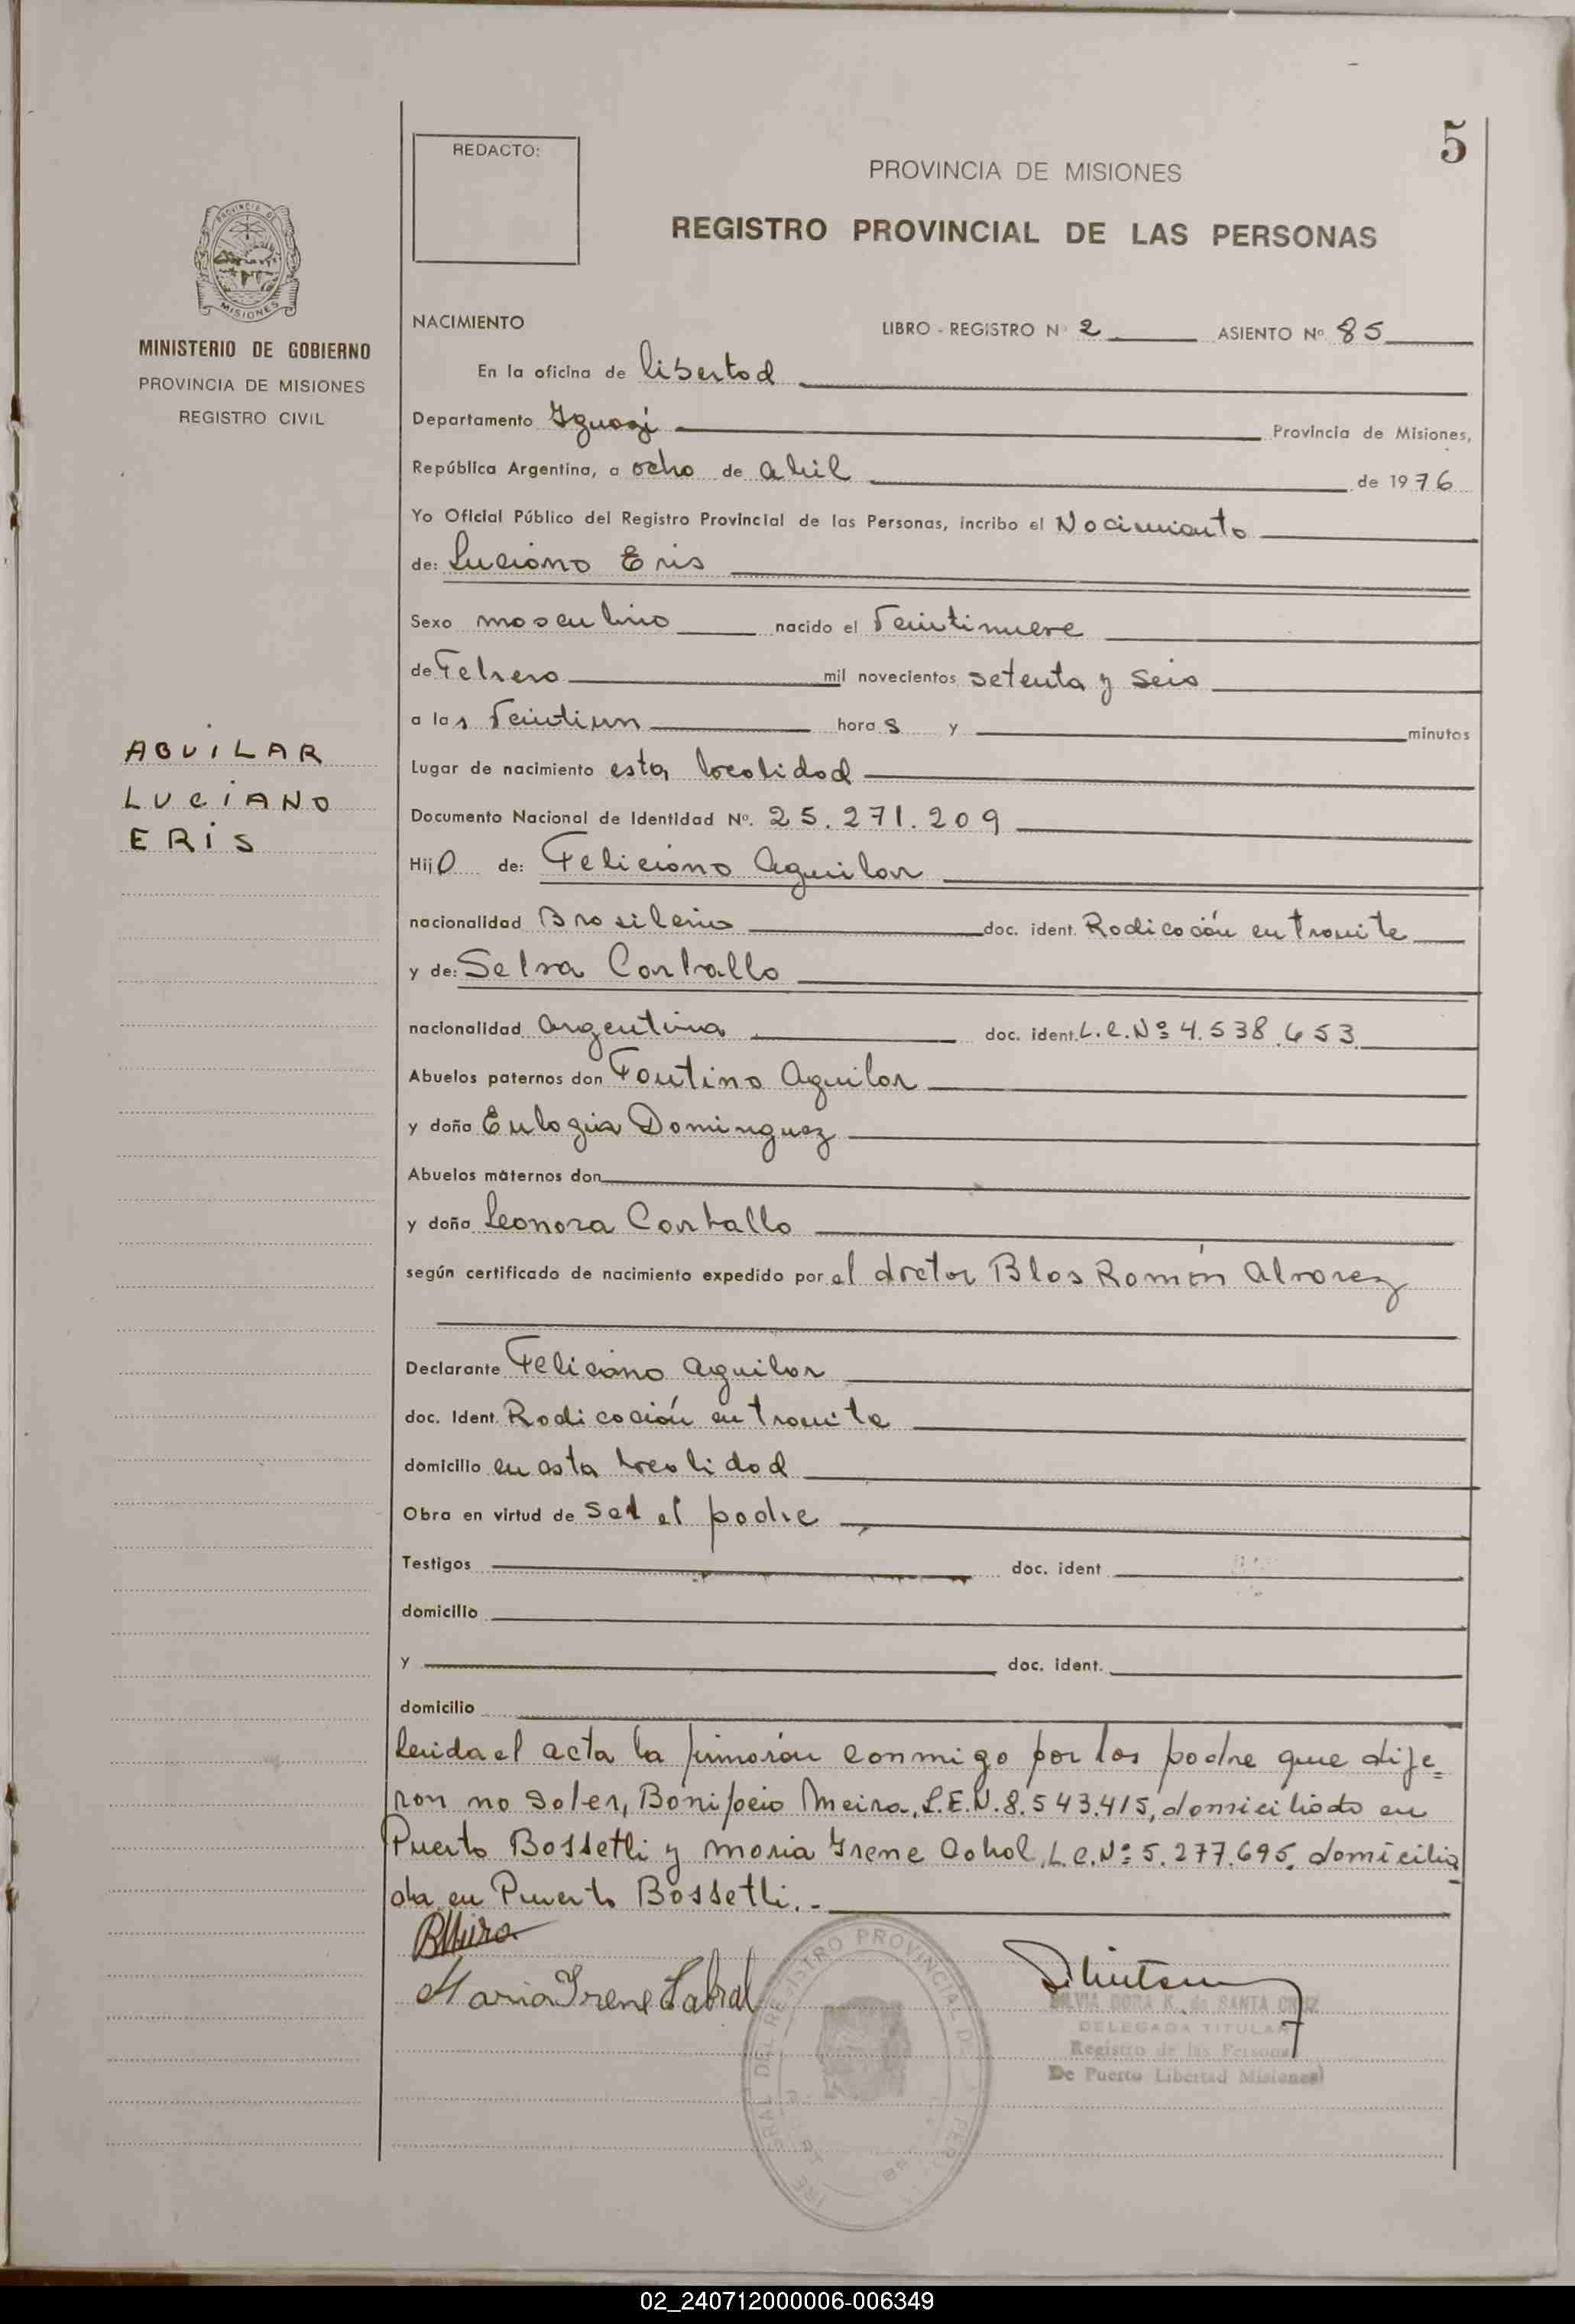 5
REDACTO:
PROVINCIA DE MISIONES
REGISTRO PROVINCIAL DE LAS PERSONAS
PROVINCIA DE
MISIONES
MINISTERIO DE GOBIERNO
PROVINCIA DE MISIONES
REGISTRO CIVIL
NACIMIENTO LIBRO - REGISTRO Nº 2 ASIENTO Nº 85
En la oficina de libertad
Departamento Iguazú Provincia de Misiones,
República Argentina, a ocho de abril de 1976
Yo Oficial Público del Registro Provincial de las Personas, incribo el Nacimiento
de: Luciano Eris
Sexo masculino nacido el Veintinueve
de Febrero mil novecientos setenta y seis
a las Veintiun horas y minutos
AGUILAR
LUCIANO
ERIS
Lugar de nacimiento esta localidad
Documento Nacional de Identidad Nº. 25.271.209
Hijo de: Feliciano Aguilar
nacionalidad Brasileña doc. ident. Radicación en tramite
y de: Selva Carballo
nacionalidad argentina doc. ident. L.C.Nº 4.538.653
Abuelos paternos don Fautino Aguilar
y doña Eulogia Dominguez
Abuelos maternos don
y doña Leonora Carballo
según certificado de nacimiento expedido por el doctor Blas Ramón Alvarez
Declarante Feliciano Aguilar
doc. Ident. Radicación en tramite
domicilio en esta localidad
Obra en virtud de ser el padre
Testigos doc. ident
domicilio
y doc. ident.
domicilio
leida el acta la firmarán conmigo por los padre que dije=
ron no saber, Bonifacio Meira, L.E.N.8.543.415, domiciliado en
Puerto Bossetti y Maria Irene Cabral, L.C.Nº 5.277.695, domicilia
da en Puerto Bossetti.-
Maria Irene Cabral
SILVIA DORA K. de SANTA CRUZ
DELEGADA TITULAR
Registro de las Personas
De Puerto Libertad Misiones
02_240712000006-006349